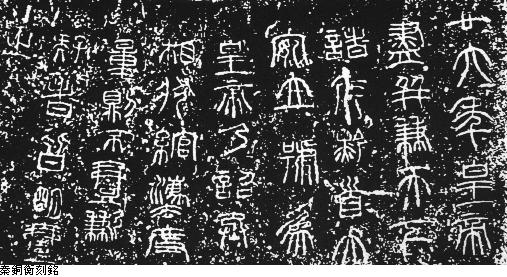 廿六年皇帝
盡并兼天下
諸侯黔首大
安立號為
皇帝乃詔丞
相狀綰灋度
量則不壹歉
疑者皆明壹
之
秦銅衡刻銘